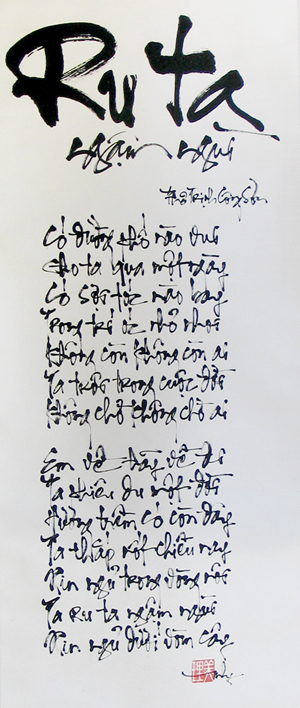 Ru ta
ngậm ngùi
Thơ Trịnh Công Sơn
Có đường phố nào vui
Cho ta qua một ngày
Có sợi tóc nào bay
Trong trí óc nhỏ nhoi
Không còn không còn ai
Ta trôi trong cuộc đời
Không chờ không chờ ai
Em về hãy về đi
Ta phiêu du một đời
Hương trầm có còn đây
Ta thắp nốt chiều nay
Xin ngủ trong vòng nôi
Ta ru ta ngậm ngùi
Xin ngủ dưới vòm cây